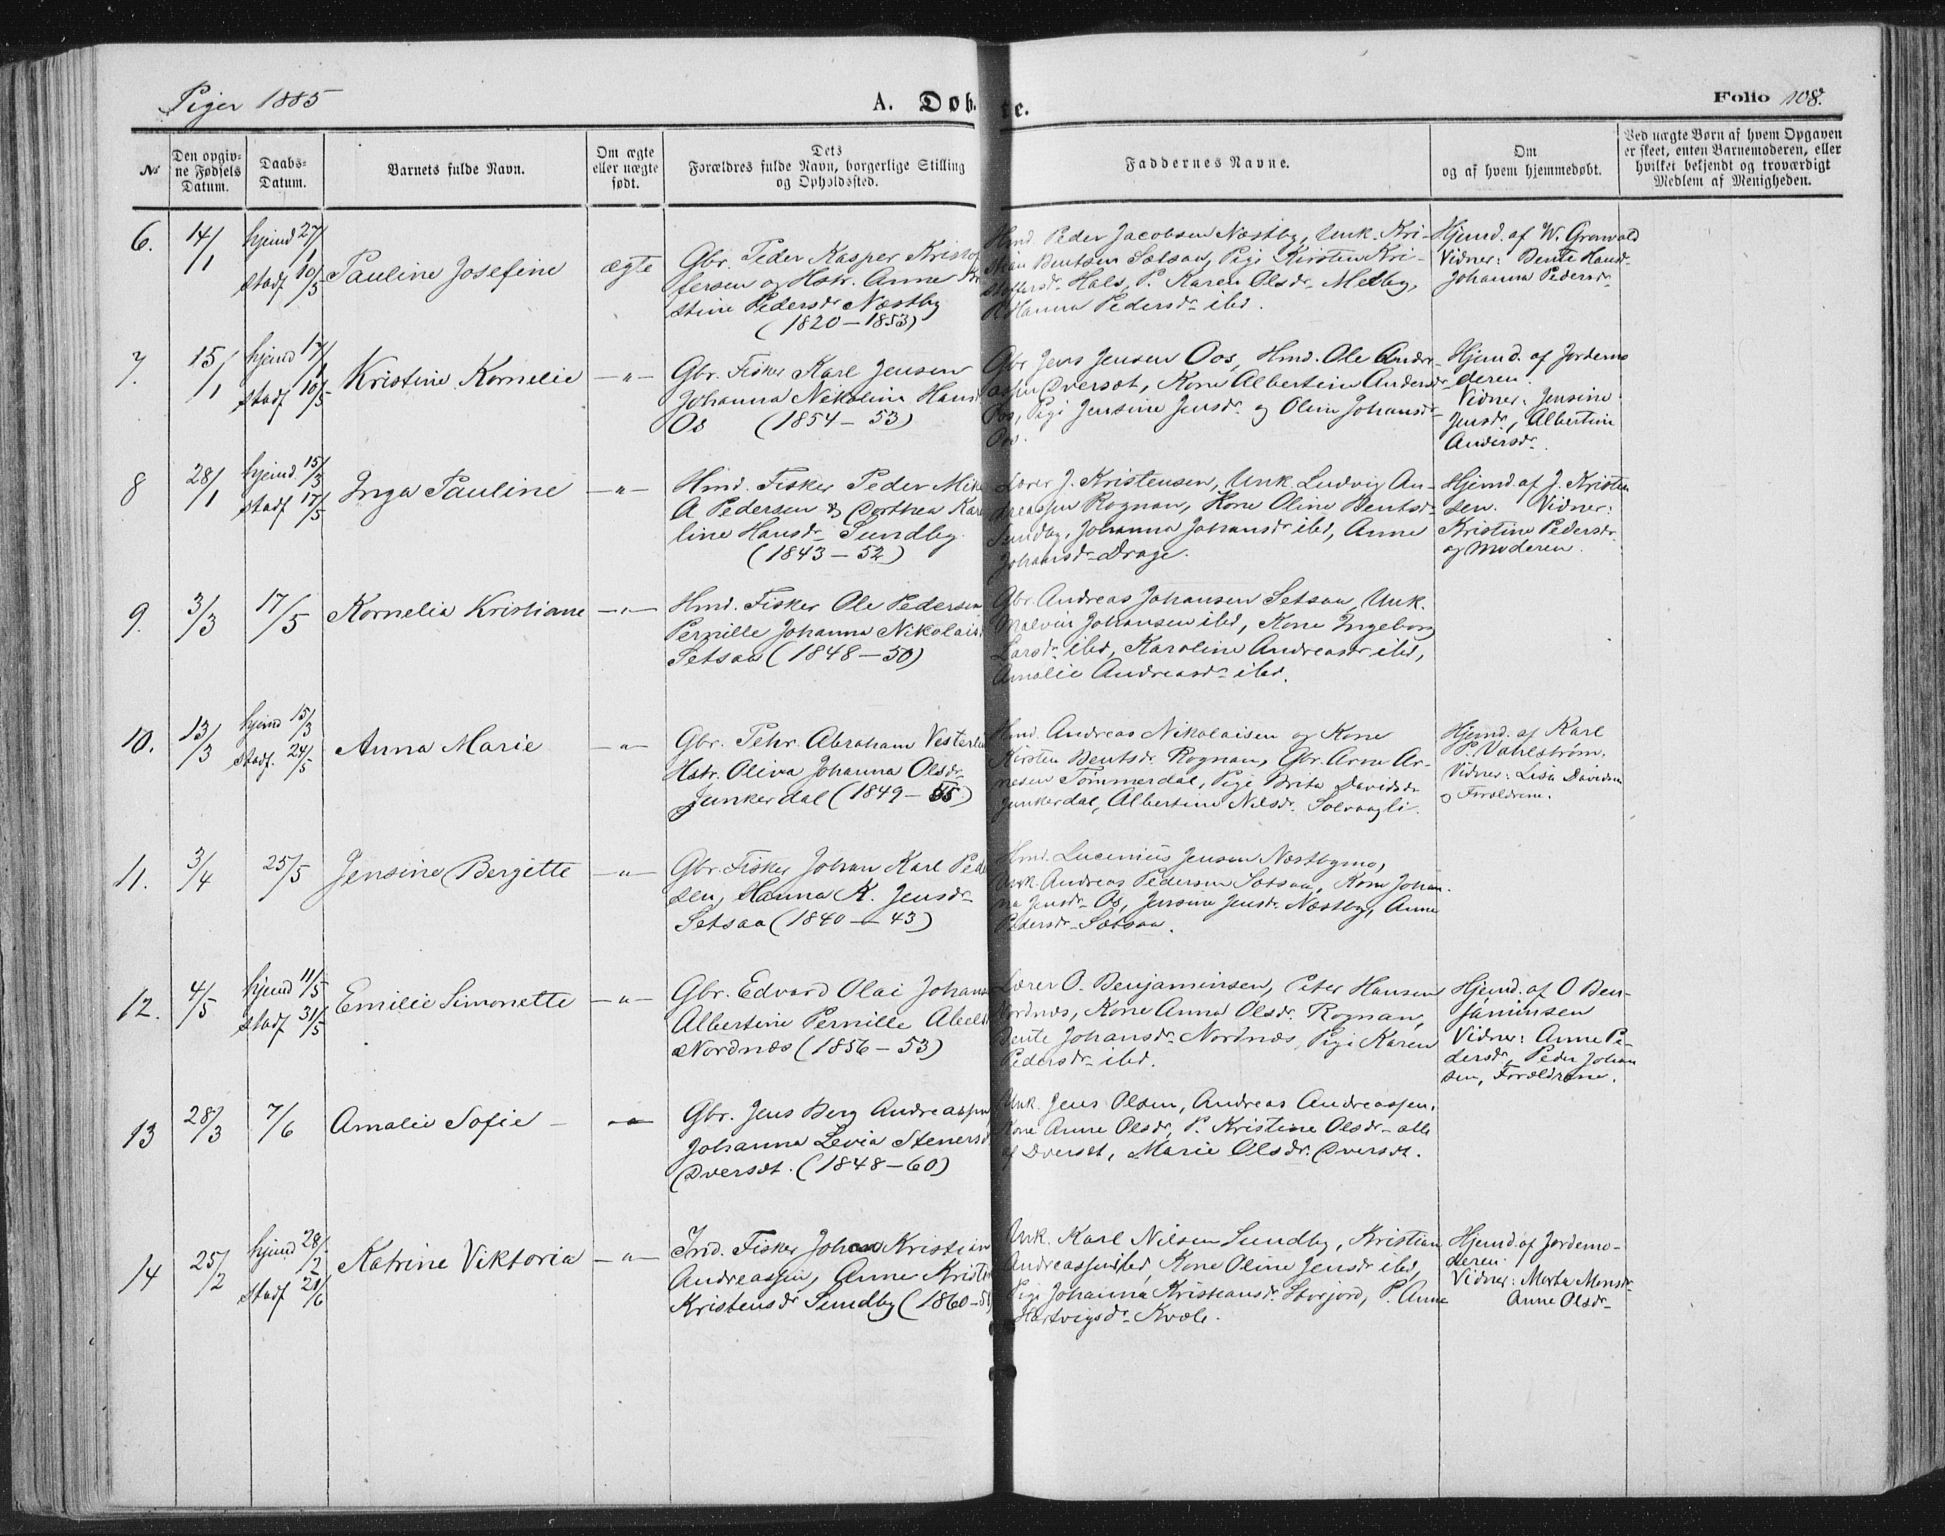 Piger 1885
A. Døb
te.
Folio 108.
No
Den opgiv-
ne Fødsels
Datum.
Daabs-
Datum.
Barnets fulde Navn.
Om ægte
eller uægte
født.
Dets
Forældres fulde Navn, borgerlige Stilling
og Opholdssted.
Faddernes Navne.
Om
og af hvem hjemmedøbt.
Ved uægte Børn af hvem Opgaven
er skeet, enten Barnemoderen, eller
hvilket bekjendt og troværdigt
Medlem af Menigheden.
6.
14/1
hjemd 27/1
stadf 10/5
Pauline Josefine
ægte
Gbr. Peder Kasper Kristof
fersen og Hstr. Anne Kri
stine Pedersdr Næstby
(1820 - 1853)
Hmd. Peder Jacobsen Næstby, Unk. Kri-
stian Bentsen Sætsaa, Pige Kirsten Kri-
stoffersdr. Hals, P. Karen Olsdr. Medby,
P. Hanna Pedersdr ibd.
Hjemd. af W. Grønvold
Vidner: Bente Hansdr
Johanna Pedersdr
7.
15/1
hjemd 17/1
stadf 10/5
Kristine Kornelie
-"-
Gbr. Fisker Karl Jensen
Johanna Nikoline Hansd
Os (1854 - 53)
Gbr Jens Jensen Oos, Hmd. Ole Andre-
assen Dverset, Kone Albertine Andersdr
Oos, Pige Jensine Jensdr. og Oline Johansdr
Oos.
Hjemd. af Jordemo
deren.
Vidner: Jensine
Jensdr., Albertine
Andersdr.
8
28/1
hjemd. 15/3
stadf 17/5
Inga Pauline
-"-
Hmd. Fisker Peder Mik
A Pedersen & Dorthea Karo
line Hansdr Sundby.
(1843 - 52)
Lærer J. Kristensen, Unk Ludvig An-
dreassen Rognan, Kone Oline Bentsdr
Sundby, Johanna Johansdr ibd, Anne
Johansdr Drage.
Hjemd. af J. Kristen
sen. Vidner:
Kristine Pedersdr
og Moderen.
9.
3/3
17/5
Kornelia Kristiane
-"-
Hmd. Fisker Ole Pedersen
Pernille Johanna Nikolaisd
Setsaa (1848 - 50)
Gbr. Andreas Johansen Setsaa, Unk.
Malvin Johansen ibd, Kone Ingeborg
Larsdr ibd, Karoline Andreasdr ibd,
Amalie Andreasdr ibd.
10.
13/3
hjemd 15/3
stadf. 24/5
Anna Marie
-"-
Gbr. Pehr Abraham Vesterlu
Hstr. Oliva Johanna Olsdr
Junkerdal (1849 - 55)
Hmd. Andreas Nikolaisen og Kone
Kirsten Bentsdr. Rognan, Gbr. Arne Ar-
nesen Tømmerdal, Pige Brita Davidsdr
Junkerdal, Albertine Nilsdr. Solvaagli.
Hjemd. af Karl
P. Vahlstrøm.
Vidner: Lisa Davidsen
og Forældrene.
11.
3/4
25/5
Jensine Bergitte
-"-
Gbr. Fisker Johan Karl Peder
sen, Hanna K. Jensdr
Setsaa (1840 - 43)
Hmd. Lucinius Jensen Næstbymo,
Unk. Andreas Pedersen Sætsaa, Kone Johan-
na Jensdr Os, Jensine Jensdr. Næstby, Anne
Pedersdr Sætsaa.
12.
4/5
hjemd 11/5
stadf 31/5
Emilie Simonette
-"-
Gbr. Edvard Olai Johans
Albertine Pernille Abelsd
Nordnæs (1856 - 53)
Lærer O. Benjaminsen, Peter Hansen
Nordnæs, Kone Anna Olsdr. Rognan,
Bente Johansdr Nordnæs, Pige Karen
Pedersdr ibd.
Hjemd. af O Ben-
jaminsen
Vidner: Anne Pe-
dersdr, Peder Johan
sen, Forældrene.
13
28/3
7/6
Amalie Sofie -
-"-
Gbr. Jens Berg Andreassen,
Johanna Levia Stenersd
Dverset. (1848 - 60)
Unk. Jens Olsen, Andreas Andreassen,
Kone Anne Olsdr, P. Kristine Olsdr - alle
af Dverset, Marie Olsdr. Dverset.
14
25/2
hjemd 28/2
stadf 21/6
Katrine Viktoria
-"-
Ind. Fisker Johan Kristian
Andreassen, Anne Kristi
Kristensdr Sundby (1860 - 5
Unk. Karl Nilsen Sundby, Kristian
Andreassen ibd, Kone Oline Jensdr ibd,
Pige Johanna Kristiansdr. Storjord, P. Anne
Hartvigsdr Kvæle.
Hjemd. af Jordemo-
deren.
Vidner: Marta Monsdr
Anne Olsdr